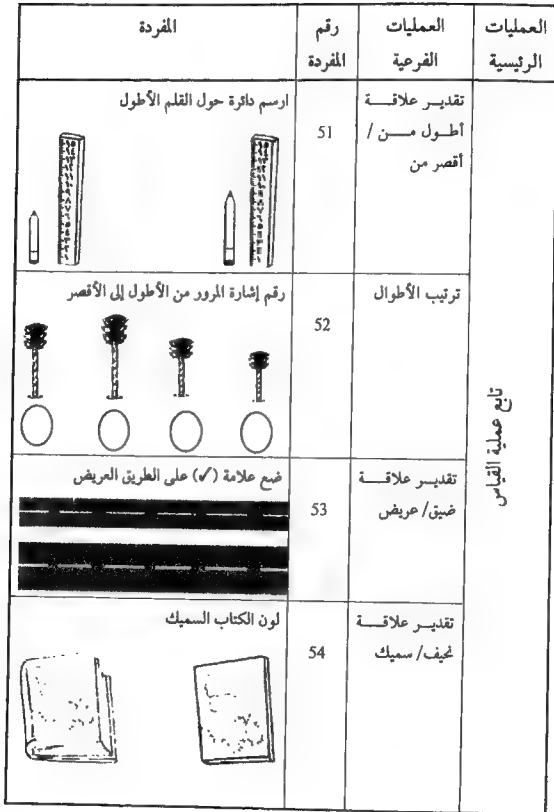 العمليات الرئيسية
العمليات الفرعية
رقم المفردة
المفردة
تابع عملية القياس
تقدير علاقة
أطول من /
أقصر من
51
ارسم دائرة حول القلم الأطول
ترتيب الأطوال
52
رقم إشارة المرور من الأطول إلى الأقصر
تقدير علاقة
ضيق/ عريض
53
ضع علامة (✓) على الطريق العريض
تقدير علاقة
نحيف/ سميك
54
لون الكتاب السميك